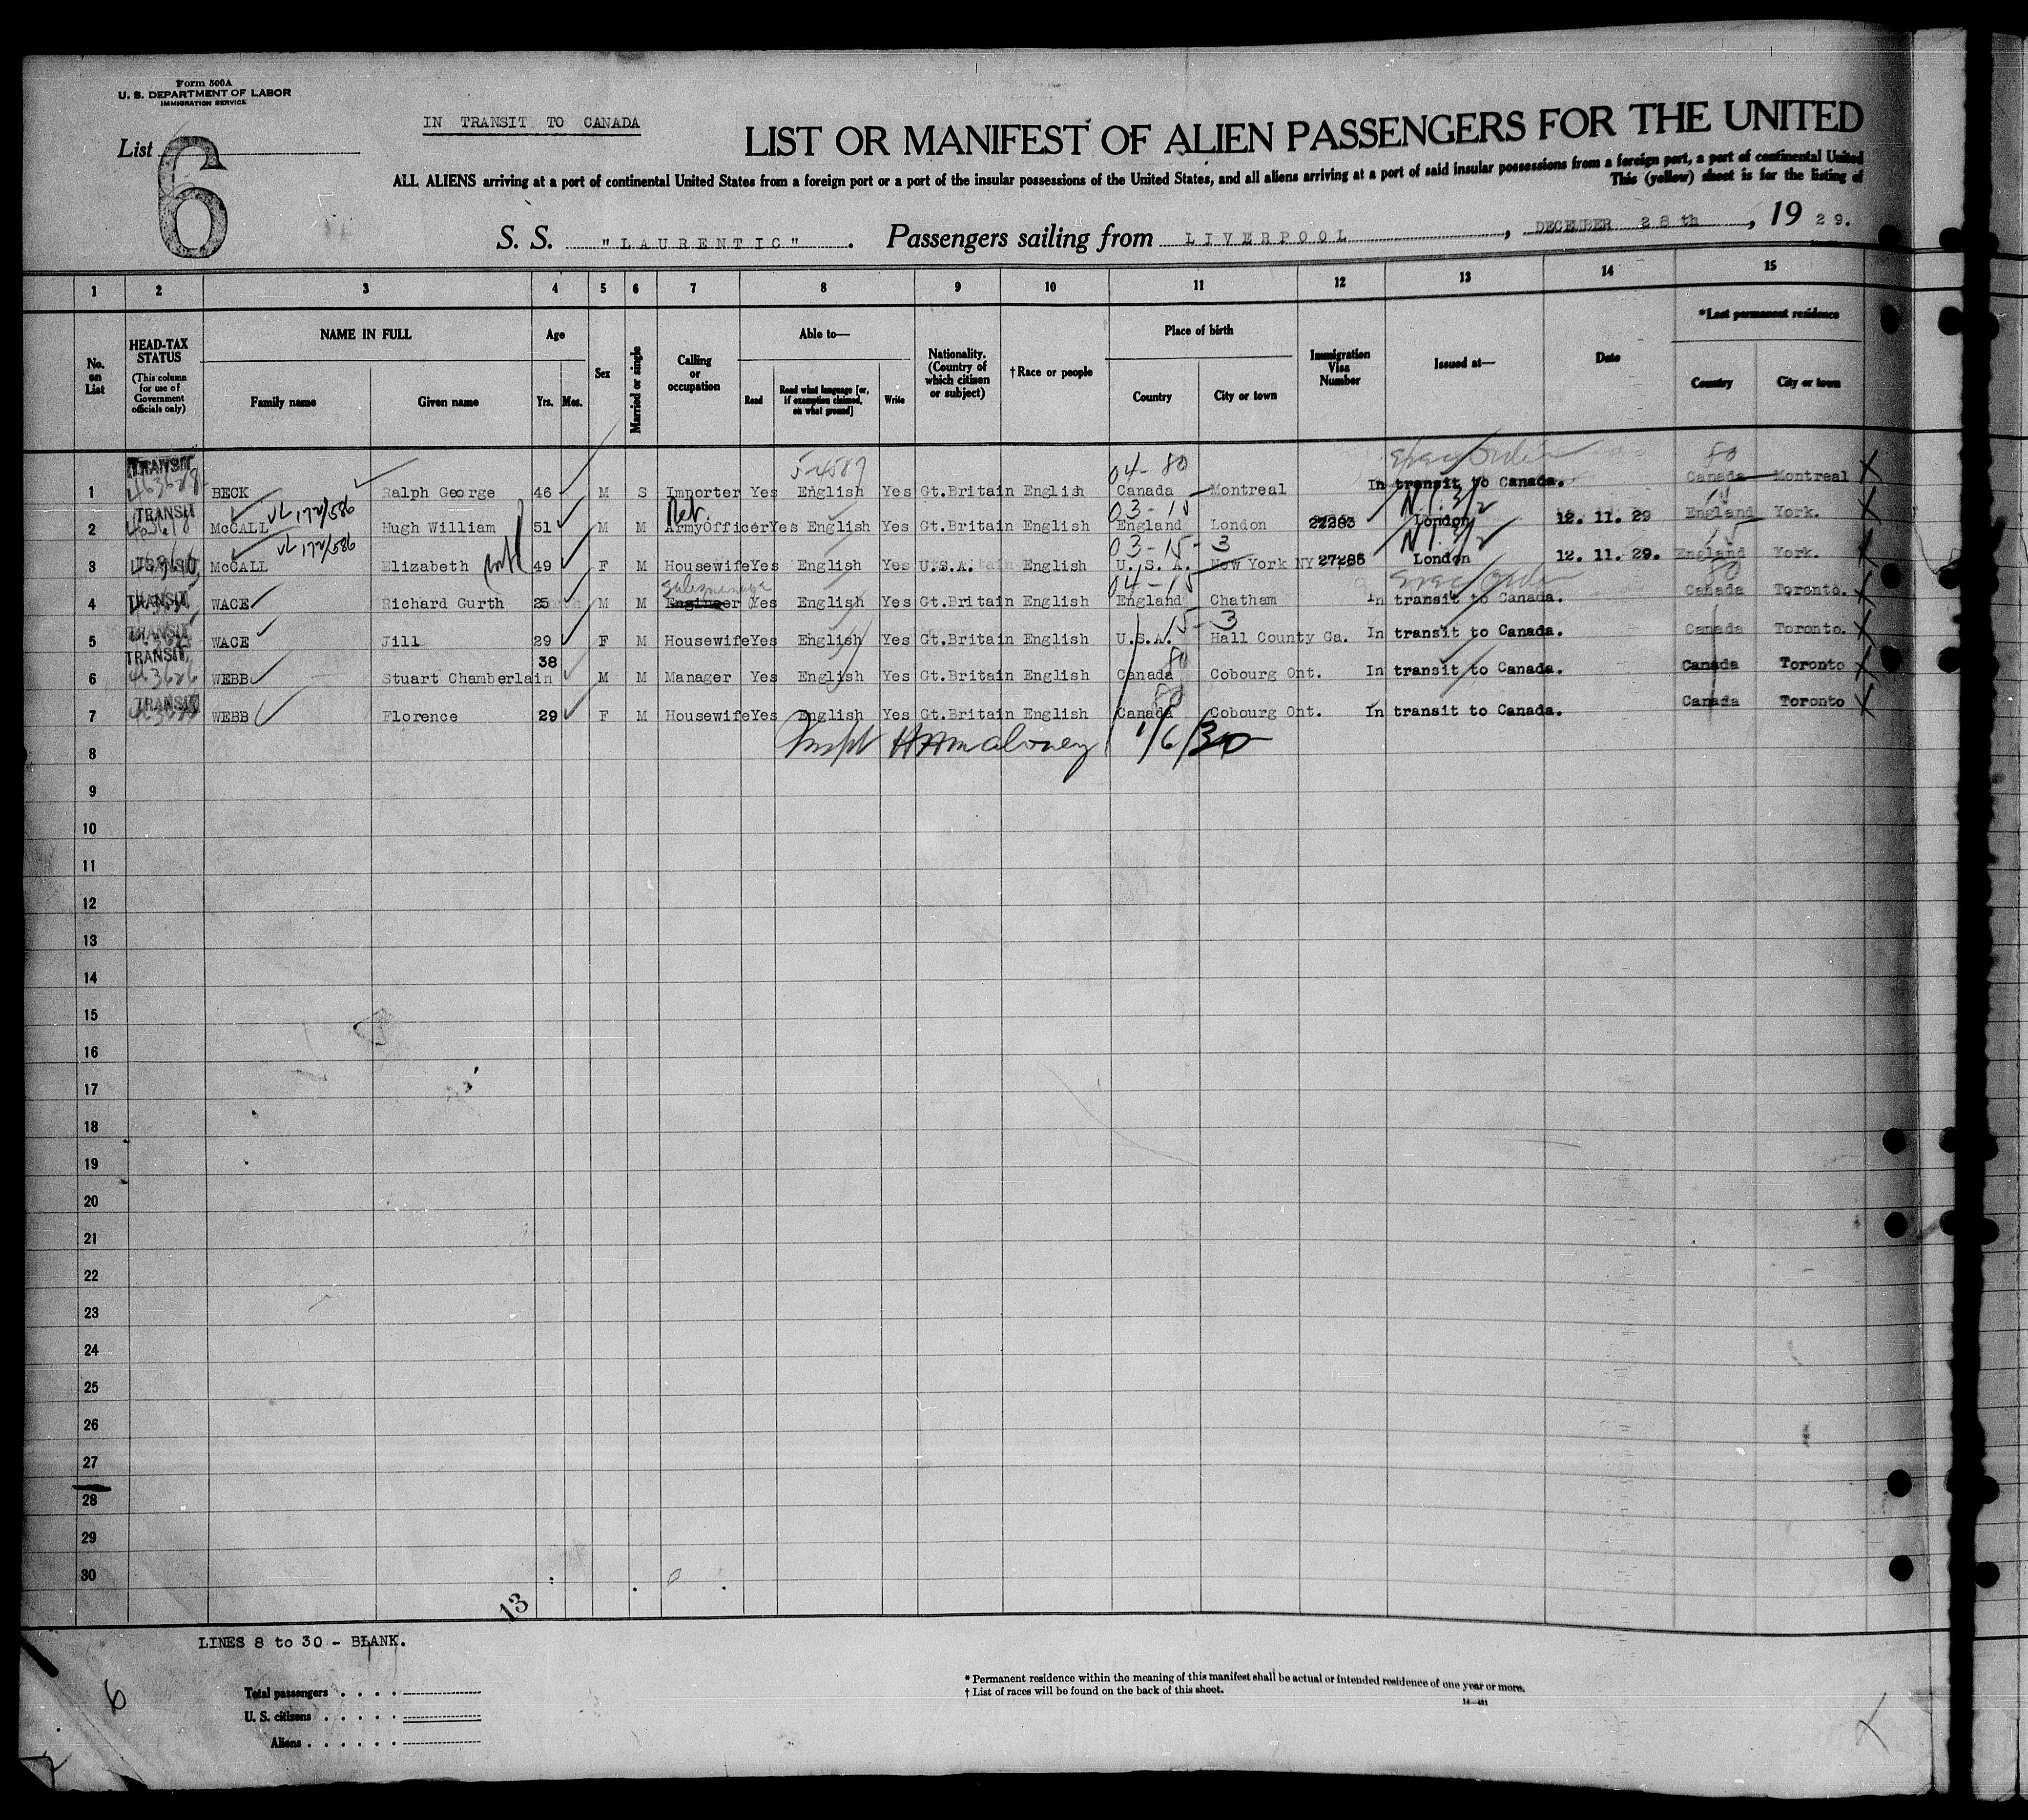 Form 500A
U. S. DEPARTMENT OF LABOR
IMMIGRATION SERVICE
List 6
IN TRANSIT TO CANADA
LIST OR MANIFEST OF ALIEN PASSENGERS FOR THE UNITED
ALL ALIENS arriving at a port of continental United States from a foreign port or a port of the insular possessions of the United States, and all aliens arriving at a port of said insular possessions from a foreign port, a port of continental United
This (yellow) sheet is for the listing of
S. S. "LAURENTIC". Passengers sailing from LIVERPOOL, DECEMBER 28th, 1929.
1 2 3 4 5 6 7 8 9 10 11 12 13 14 15
No. on List
HEAD-TAX STATUS
(This column for use of Government officials only)
NAME IN FULL
Family name Given name
Age
Yrs. Mos.
Sex
Married or single
Calling or occupation
Able to—
Read Read what language [or, if exemption claimed, on what ground] Write
Nationality. (Country of which citizen or subject)
†Race or people
Place of birth
Country City or town
Immigration Visa Number
Issued at—
Date
*Last permanent residence
Country City or town
5-4587 04-80 80
1 TRANSIT BECK Ralph George 46 M S Importer Yes English Yes Gt.Britain English Canada Montreal In transit to Canada. Canada Montreal X
VL 172/586 Ret. 03-15 N.I. 3/2
2 TRANSIT McCALL Hugh William 51 M M ArmyOfficer Yes English Yes Gt.Britain English England London 22283 London 12. 11. 29 England York. X
VL 172/586 03-15-3 N.I. 3/2 15
3 TRANSIT McCALL Elizabeth 49 F M Housewife Yes English Yes U.S.A. English U. S. A. New York NY 27285 London 12. 11. 29. England York. X
04-15 80
4 TRANSIT WACE Richard Gurth 25 M M Engineer Yes English Yes Gt.Britain English England Chatham In transit to Canada. Canada Toronto. X
15-3
5 TRANSIT WACE Jill 29 F M Housewife Yes English Yes Gt.Britain English U.S.A. Hall County Ca. In transit to Canada. Canada Toronto. X
80
6 TRANSIT, WEBB Stuart Chamberlain 38 M M Manager Yes English Yes Gt.Britain English Canada Cobourg Ont. In transit to Canada. Canada Toronto X
80
7 TRANSIT WEBB Florence 29 F M Housewife Yes English Yes Gt.Britain English Canada Cobourg Ont. In transit to Canada. Canada Toronto X
8 Inspt Maloney 1/6/30
9
10
11
12
13
14
15
16
17
18
19
20
21
22
23
24
25
26
27
28
29
30
13
LINES 8 to 30 - BLANK.
6
Total passengers
U. S. citizens
Aliens
* Permanent residence within the meaning of this manifest shall be actual or intended residence of one year or more.
† List of races will be found on the back of this sheet.